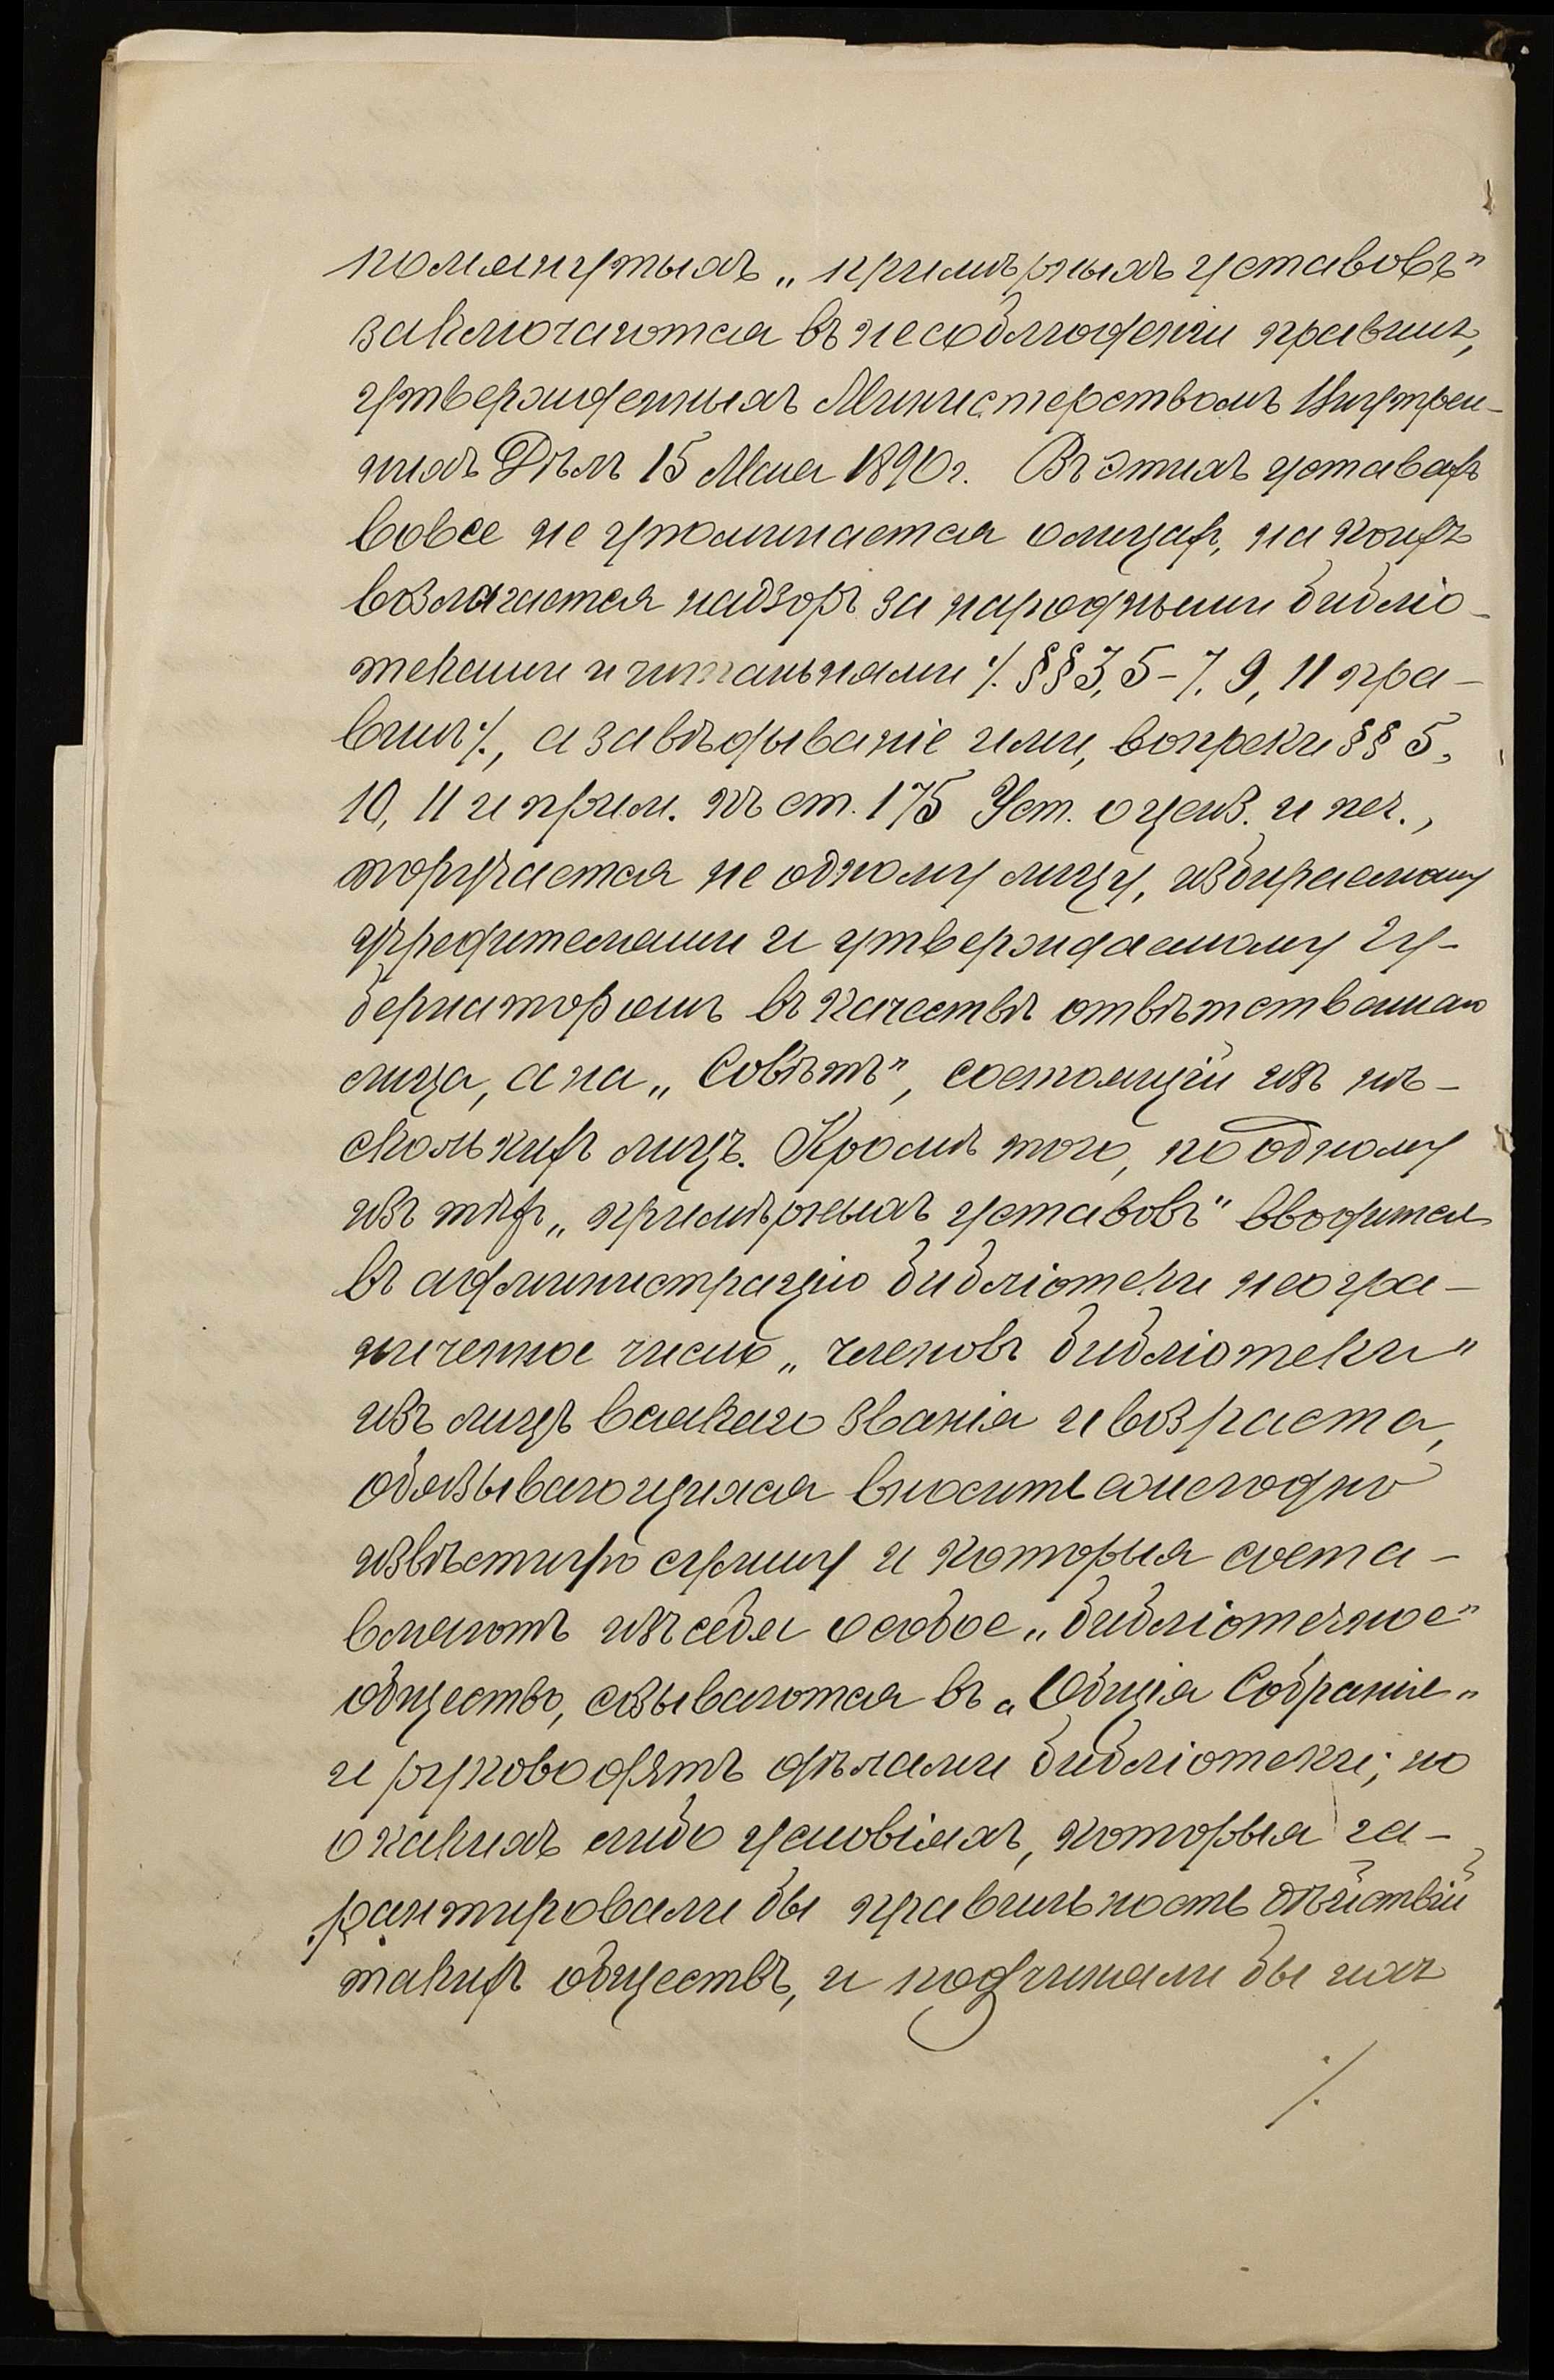 помянутыхъ „примѣрныхъ уставовъ"
заключаются въ несоблюденіи правилъ,
утвержденныхъ Министерствомъ Внутрен-
нихъ Дѣлъ 15 Мая 1890 г. Въ этихъ уставахъ
вовсе не упоминается о лицахъ, на коихъ
возлагается надзоръ за народными библіо-
теками и читальнями ·/. §§ 3, 5-7, 9, 11 пра-
вилъ ·/., а завѣдываніе ими, вопреки §§ 5,
10, 11 и прим. къ ст. 175 Уст. о ценз. и печ.,
поручается не одному лицу, избираемому
учредителями и утверждаемому Гу-
бернаторомъ въ качествѣ отвѣтственнаго
лица, а на „Совѣтъ", состоящій изъ нѣ-
сколькихъ лицъ. Кромѣ того, по одному
изъ тѣхъ „примѣрныхъ уставовъ" вводится
въ администрацію библіотеки неогра-
ниченное число „членовъ библіотеки"
изъ лицъ всякаго званія и возраста,
обязывающихся вносить ежегодно
извѣстную сумму и которыя соста-
вляютъ изъ себя особое „библіотечное"
общество, сзываются въ „Общія Собранія"
и руководятъ дѣлами библіотеки; но
о какихъ либо условіяхъ, которыя га-
рантировали бы правильность дѣйствій
такихъ обществъ, и подчиняли бы ихъ
·/.